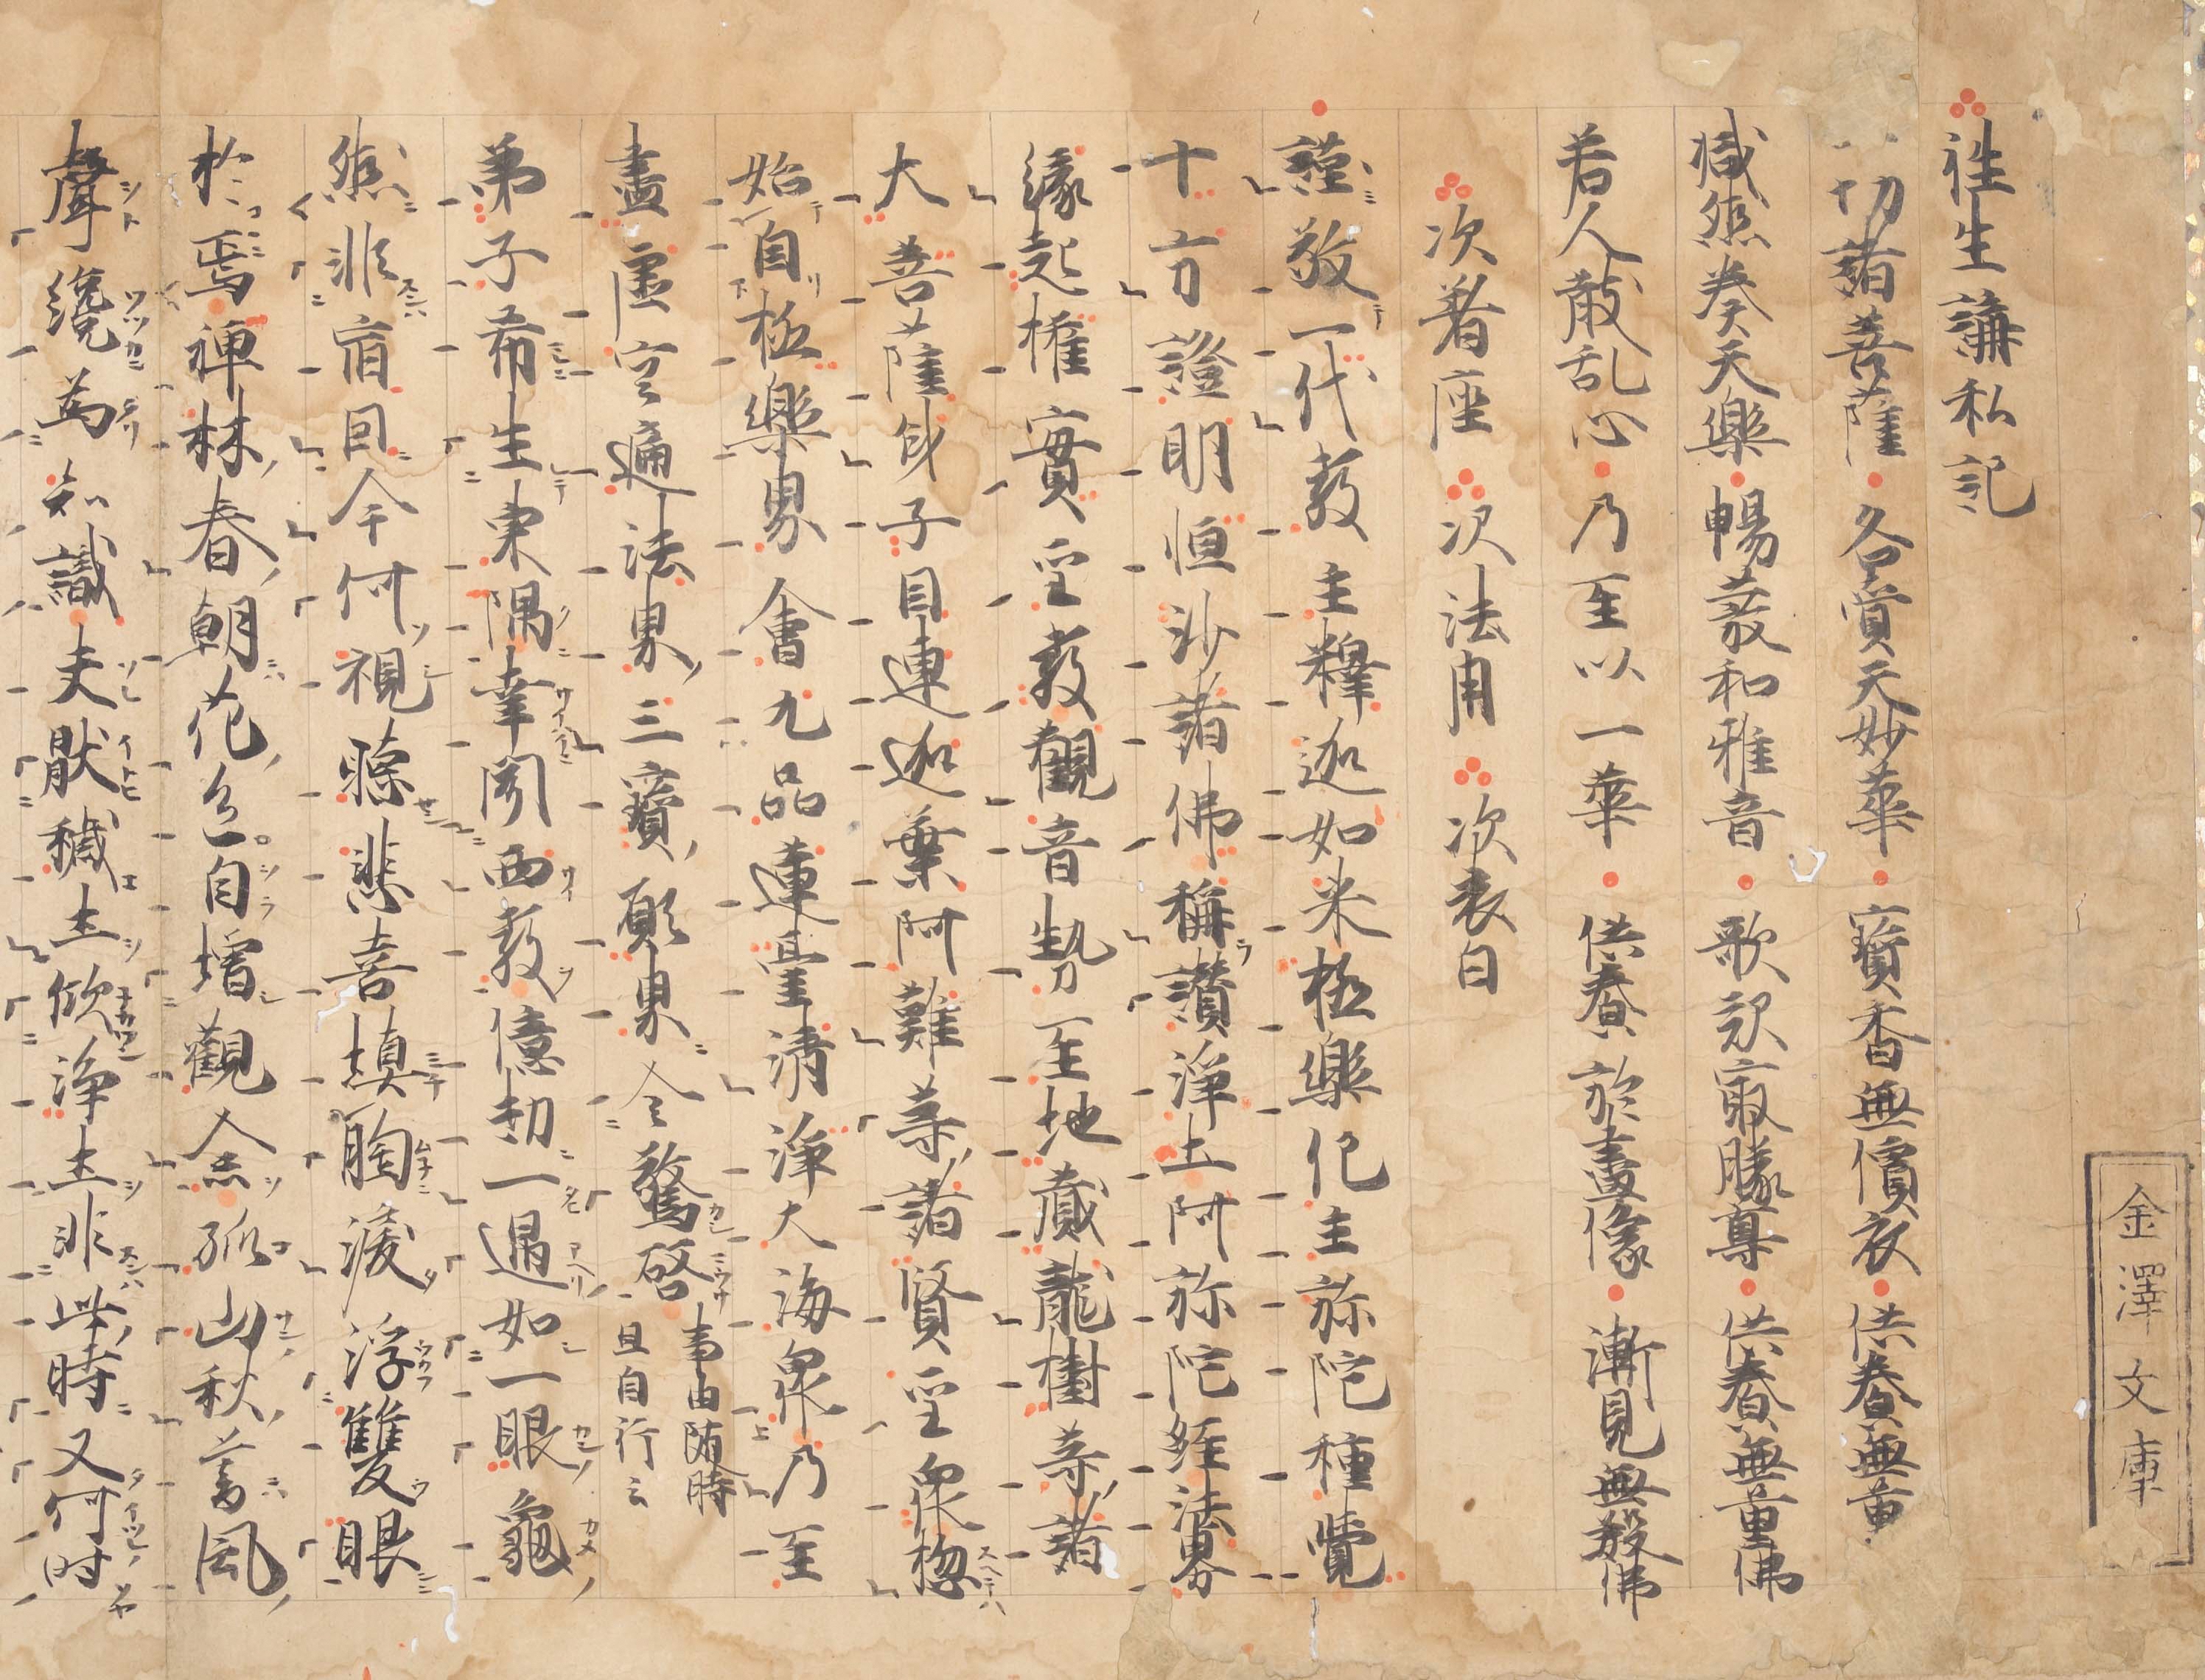 金澤文庫
往生講私記
一切諸菩薩 各賷天妙華 寶香無價衣 供養無量
咸然奏天樂 暢發和雅音 歌歎最勝尊 供養無量佛
若人散乱心 乃至以一華 供養於畫像 漸見無數佛
次着座 次法用 次表白
謹敬一代教主釋迦如来極樂化主弥陀種覺
十方證明恒沙諸佛稱讚淨土阿弥陀経法界
縁起權實聖教觀音勢至地藏龍樹等諸
大菩薩身子目連迦葉阿難等諸賢聖衆惣
始自極樂界會九品蓮臺清淨大海衆乃至
盡虚空遍法界三寶願界而言驚啓 事由随時
且自行云
弟子希生東隅幸聞西教億劫一遇如一眼龜
然非盲回今何視聴悲喜填胸涙浮雙眼
於焉禅林春朝花色自増觀念孤山秋暮風
聲纔為知識夫猒穢土欣浄土非此時又何时